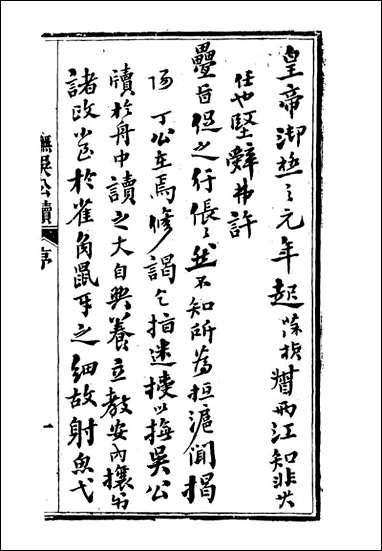 皇帝御極之元年起葆楨督兩江知非其
任也堅辭弗許
疊旨促之行倀倀然不知所為抵滬聞揭
陽丁公在焉修謁乞指迷授以撫吳公
牘於舟中讀之大自典養立教安內攘外
諸政於雀角鼠牙之細故射魚弋
撫吳公牘 序 一